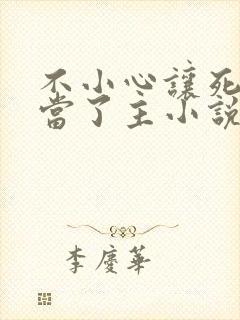 不小心讓死
當了主小說
李慶華